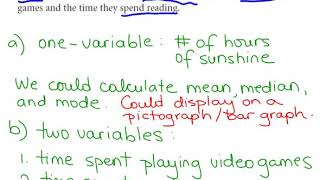 games and the time they spend reading.
a) one-variable: # of hours
of sunshine
We could calculate mean, median,
and mode. Could display on a
pictograph/bar graph.
b) two variables:
1. time spent playing videogames
2. time